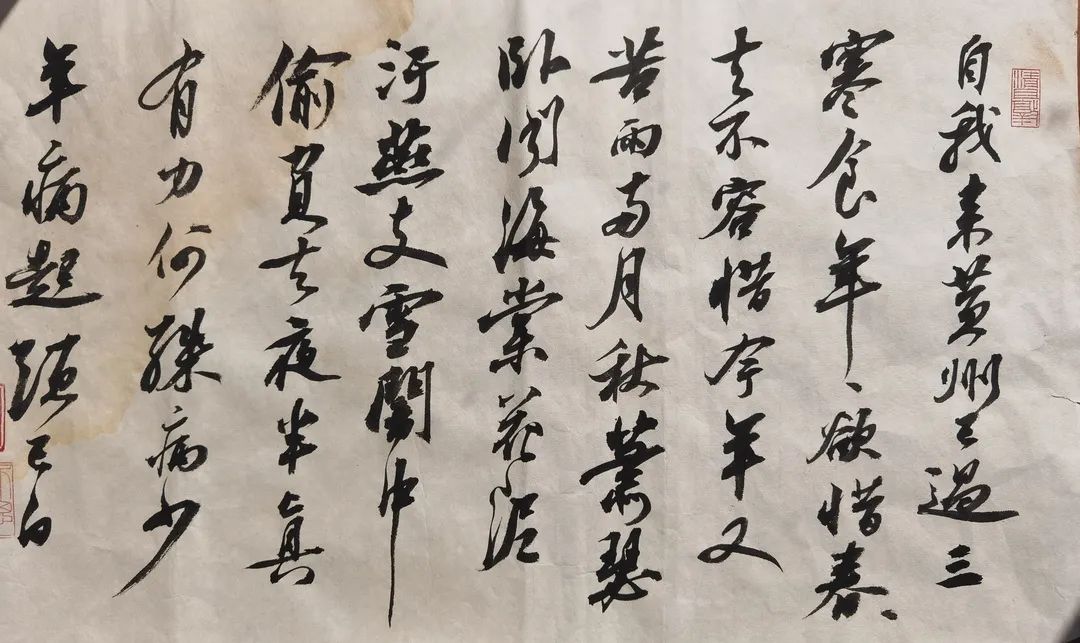 自我来黄州已過三
寒食年〻欲惜春〻
去不容惜今年又
苦雨两月秋蕭瑟
卧闻海棠花泥
汙燕支雪闇中
偷負去夜半真
有力何殊病少
年病起頭已白